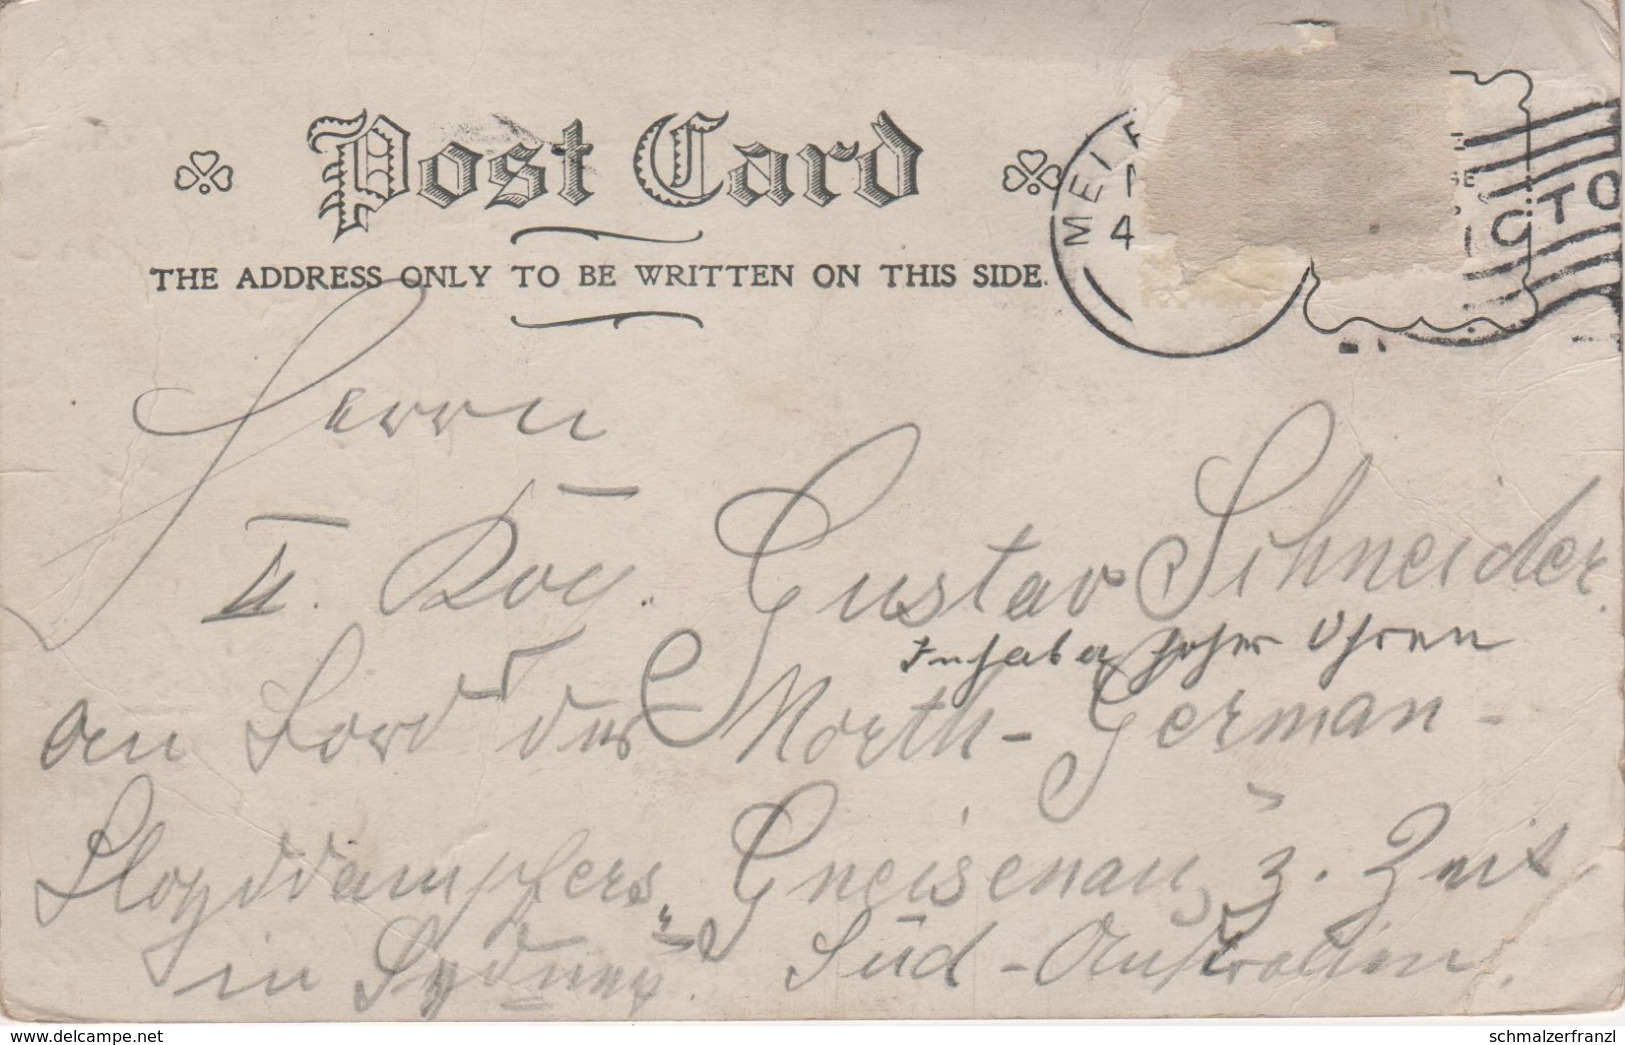 Post Card
THE ADDRESS ONLY TO BE WRITTEN ON THIS SIDE.
MELB
4
CTO
Herrn
II. Gustav Schneider.
Inhaber hoher Ohren
an Bord des North-German-
Lloyddampfers „Gneisenau“ z. Zeit
in Sydney. Süd-Australien.
www.delcampe.net
schmalzerfranzl